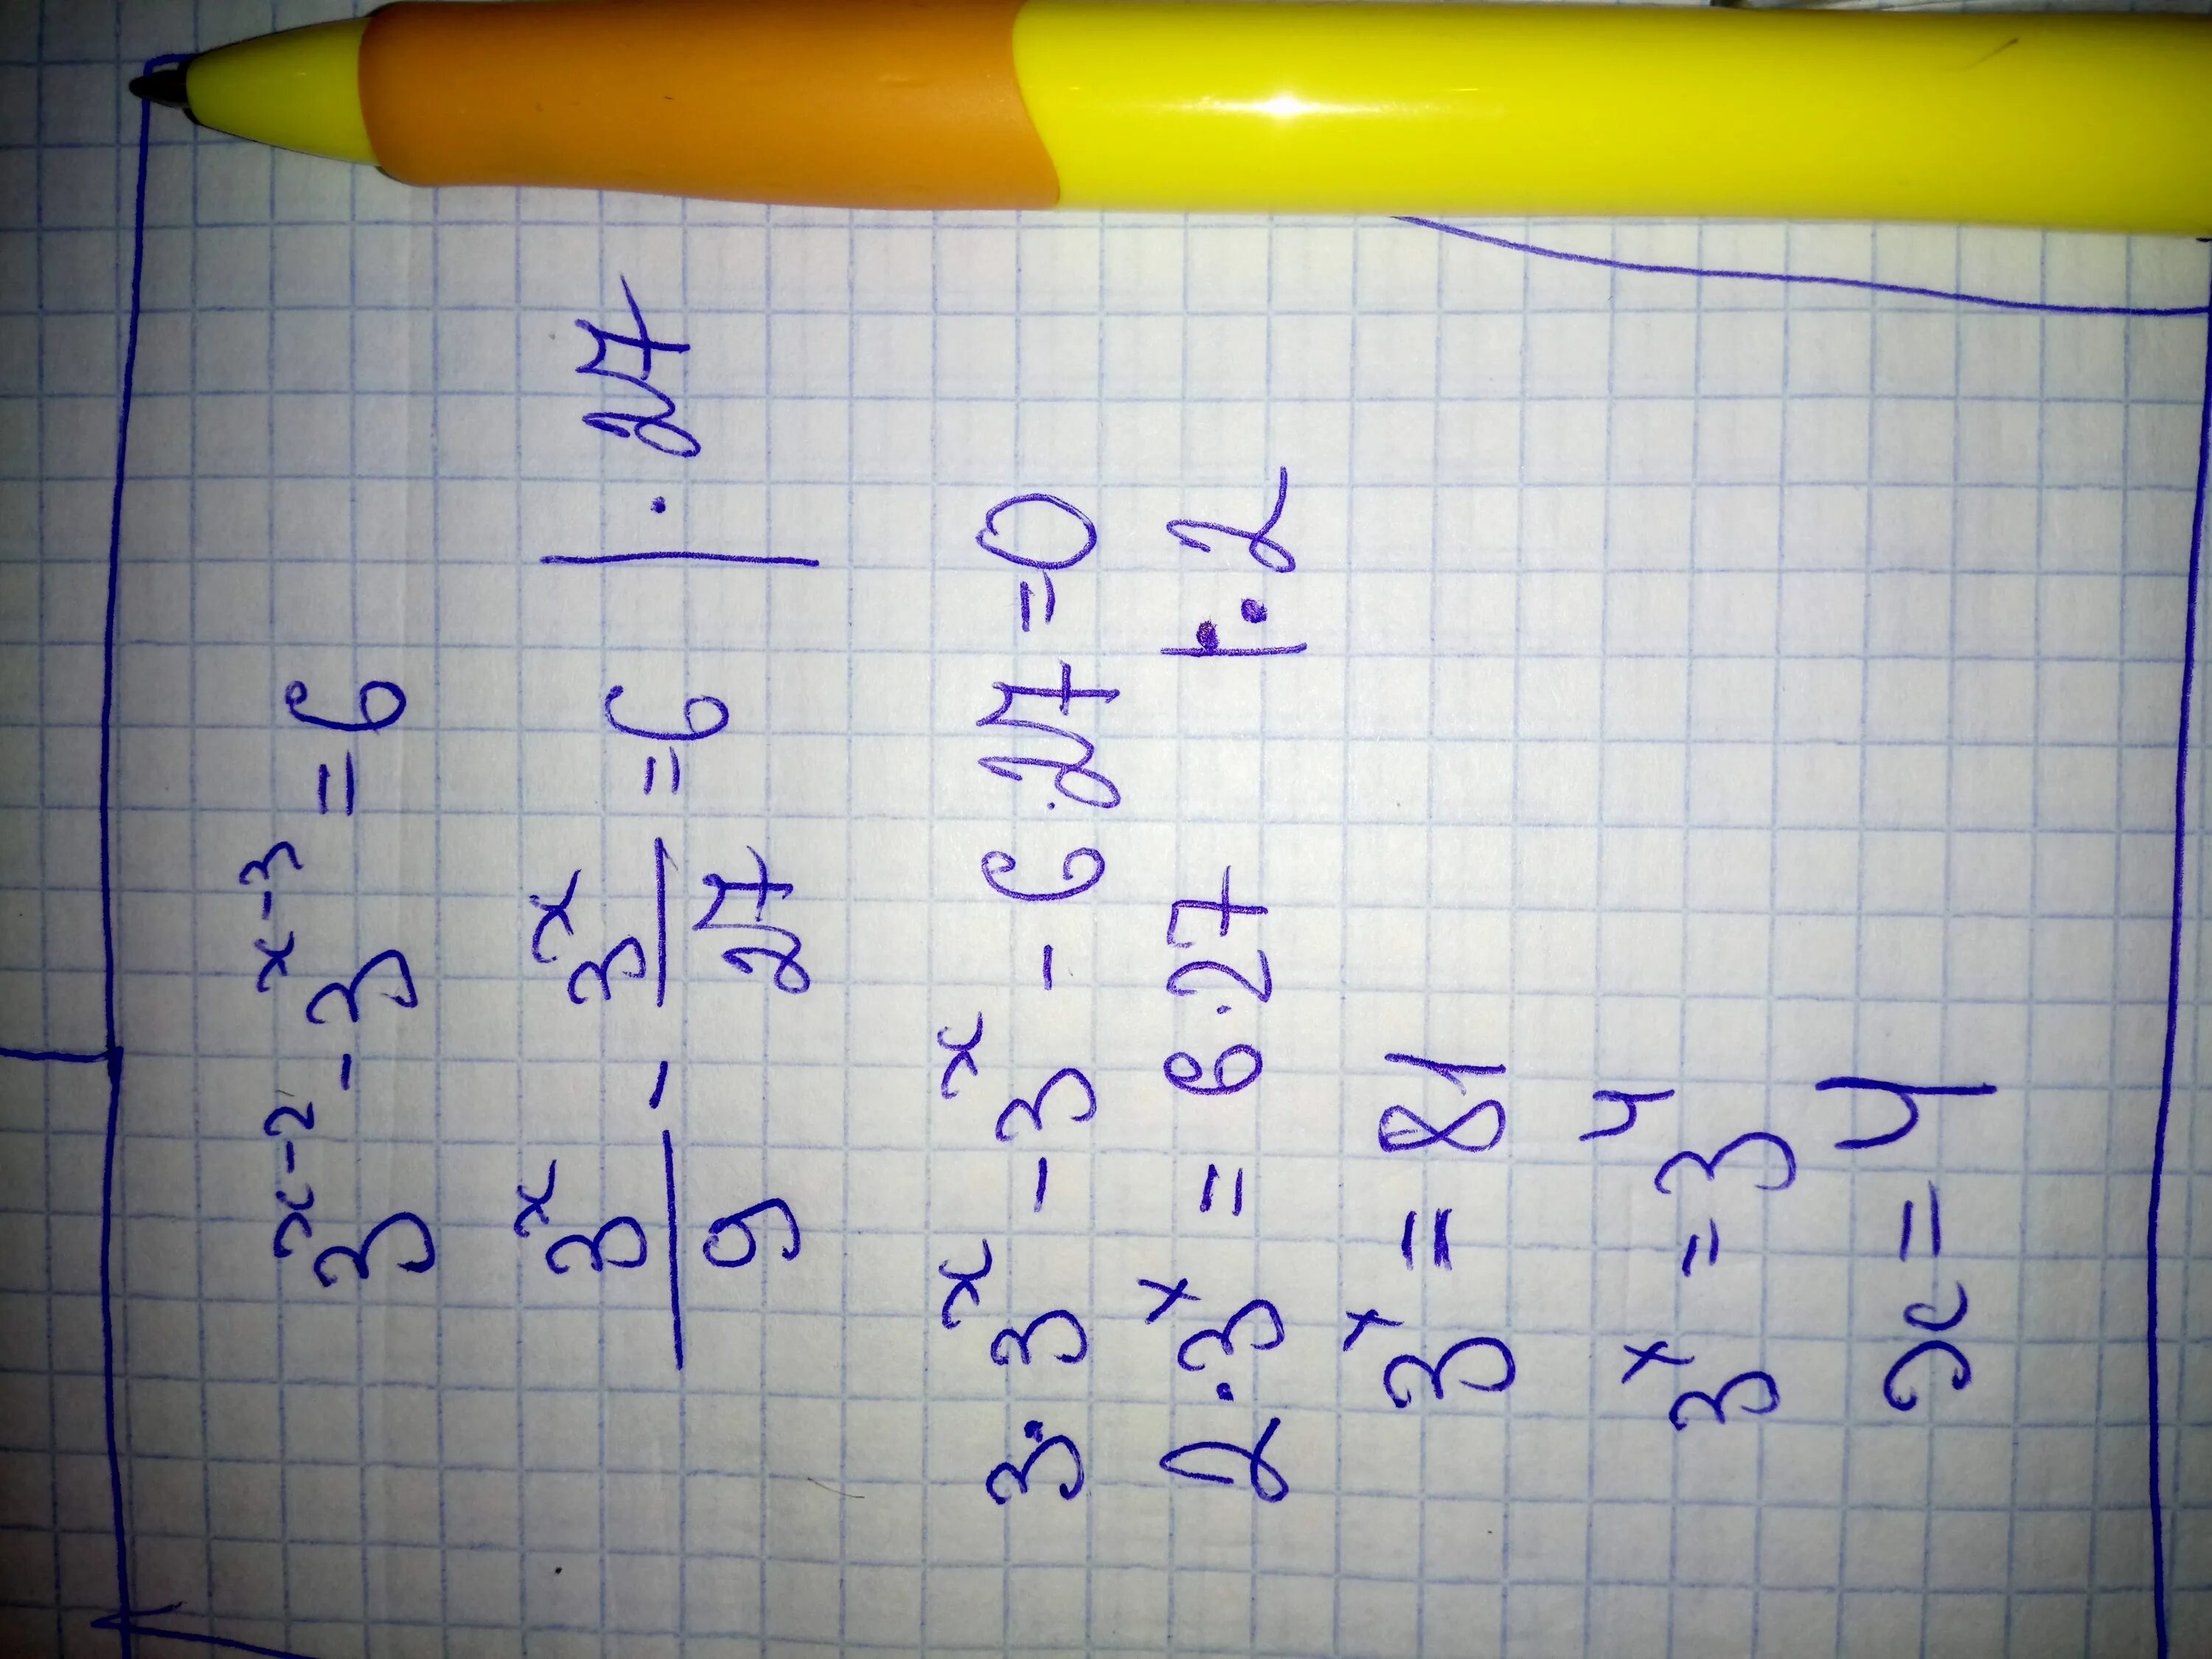 3^{x-2} - 3^{x-3} = 6
\frac{3^x}{9} - \frac{3^x}{27} = 6 | · 27
3·3^x - 3^x - 6·27 = 0
2·3^x = 6·27 |:2
3^x = 81
3^x = 3^4
x = 4